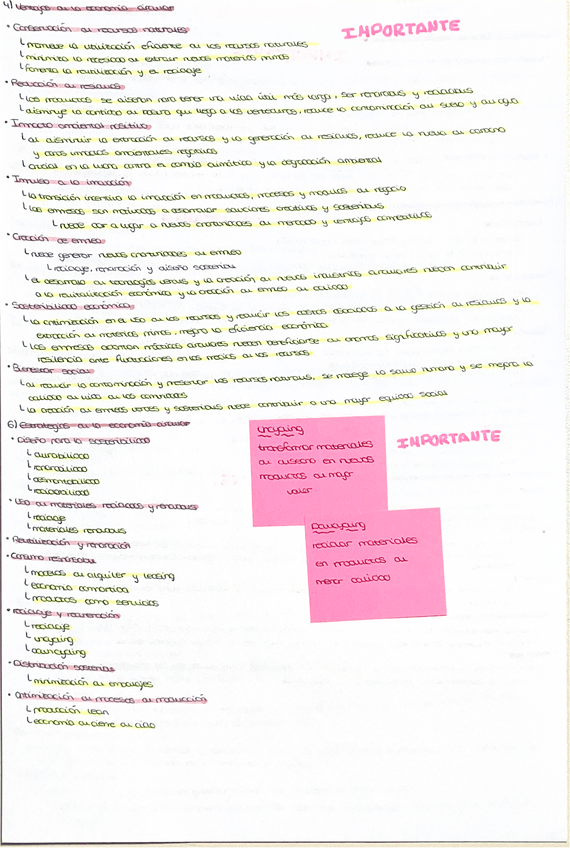 4) Ventajas de la economía circular
IMPORTANTE
· Conservación de recursos naturales
└ promueve la utilización eficiente de los recursos naturales
└ minimiza la necesidad de extraer nuevas materias primas
└ fomenta la reutilización y el reciclaje
· Reducción de residuos
└ los productos se diseñan para tener una vida útil más larga, ser reparables y reciclables
└ disminuye la cantidad de basura que llega a los vertederos, reduce la contaminación del suelo y del agua
· Impacto ambiental positivo
└ al disminuir la extracción de recursos y la generación de residuos, reduce la huella de carbono
y otros impactos ambientales negativos
└ crucial en la lucha contra el cambio climático y la degradación ambiental
· Impulso a la innovación
└ la transición incentiva la innovación en productos, procesos y modelos de negocio
└ las empresas son motivadas a desarrollar soluciones creativas y sostenibles
└ puede dar lugar a nuevas oportunidades de mercado y ventajas competitivas
· Creación de empleo
└ puede generar nuevas oportunidades de empleo
└ reciclaje, reparación y diseño sostenible
└ el desarrollo de tecnologías verdes y la creación de nuevas industrias circulares pueden contribuir
a la revitalización económica y la creación de empleo de calidad
· Sostenibilidad económica
└ la optimización en el uso de los recursos y reducir los costes asociados a la gestión de residuos y la
extracción de materias primas, mejora la eficiencia económica
└ las empresas adoptan prácticas circulares pueden beneficiarse de ahorros significativos y una mayor
resilencia ante fluctuaciones en los precios de los recursos
· Bienestar social
└ al reducir la contaminación y preservar los recursos naturales, se protege la salud humana y se mejora la
calidad de vida de las comunidades
└ la creación de empleos verdes y sostenibles puede contribuir a una mayor equidad social
6) Estrategias de la economía circular
IMPORTANTE
· Diseño para la sostenibilidad
└ durabilidad
└ reparabilidad
└ desmontabilidad
└ reciclabilidad
· Uso de materiales reciclados y renovables
└ reciclaje
└ materiales renovables
· Reutilización y reparación
· Consumo responsable
└ modelos de alquiler y leasing
└ economía compartida
└ productos como servicios
· Reciclaje y recuperación
└ reciclaje
└ upcycling
└ downcycling
· Distribución sostenible
└ minimización de embalajes
· Optimización de procesos de producción
└ producción lean
└ economía de cierre de ciclo
Upcycling
transformar materiales
de desecho en nuevos
productos de mayor
valor
Downcycling
reciclar materiales
en productos de
menor calidad